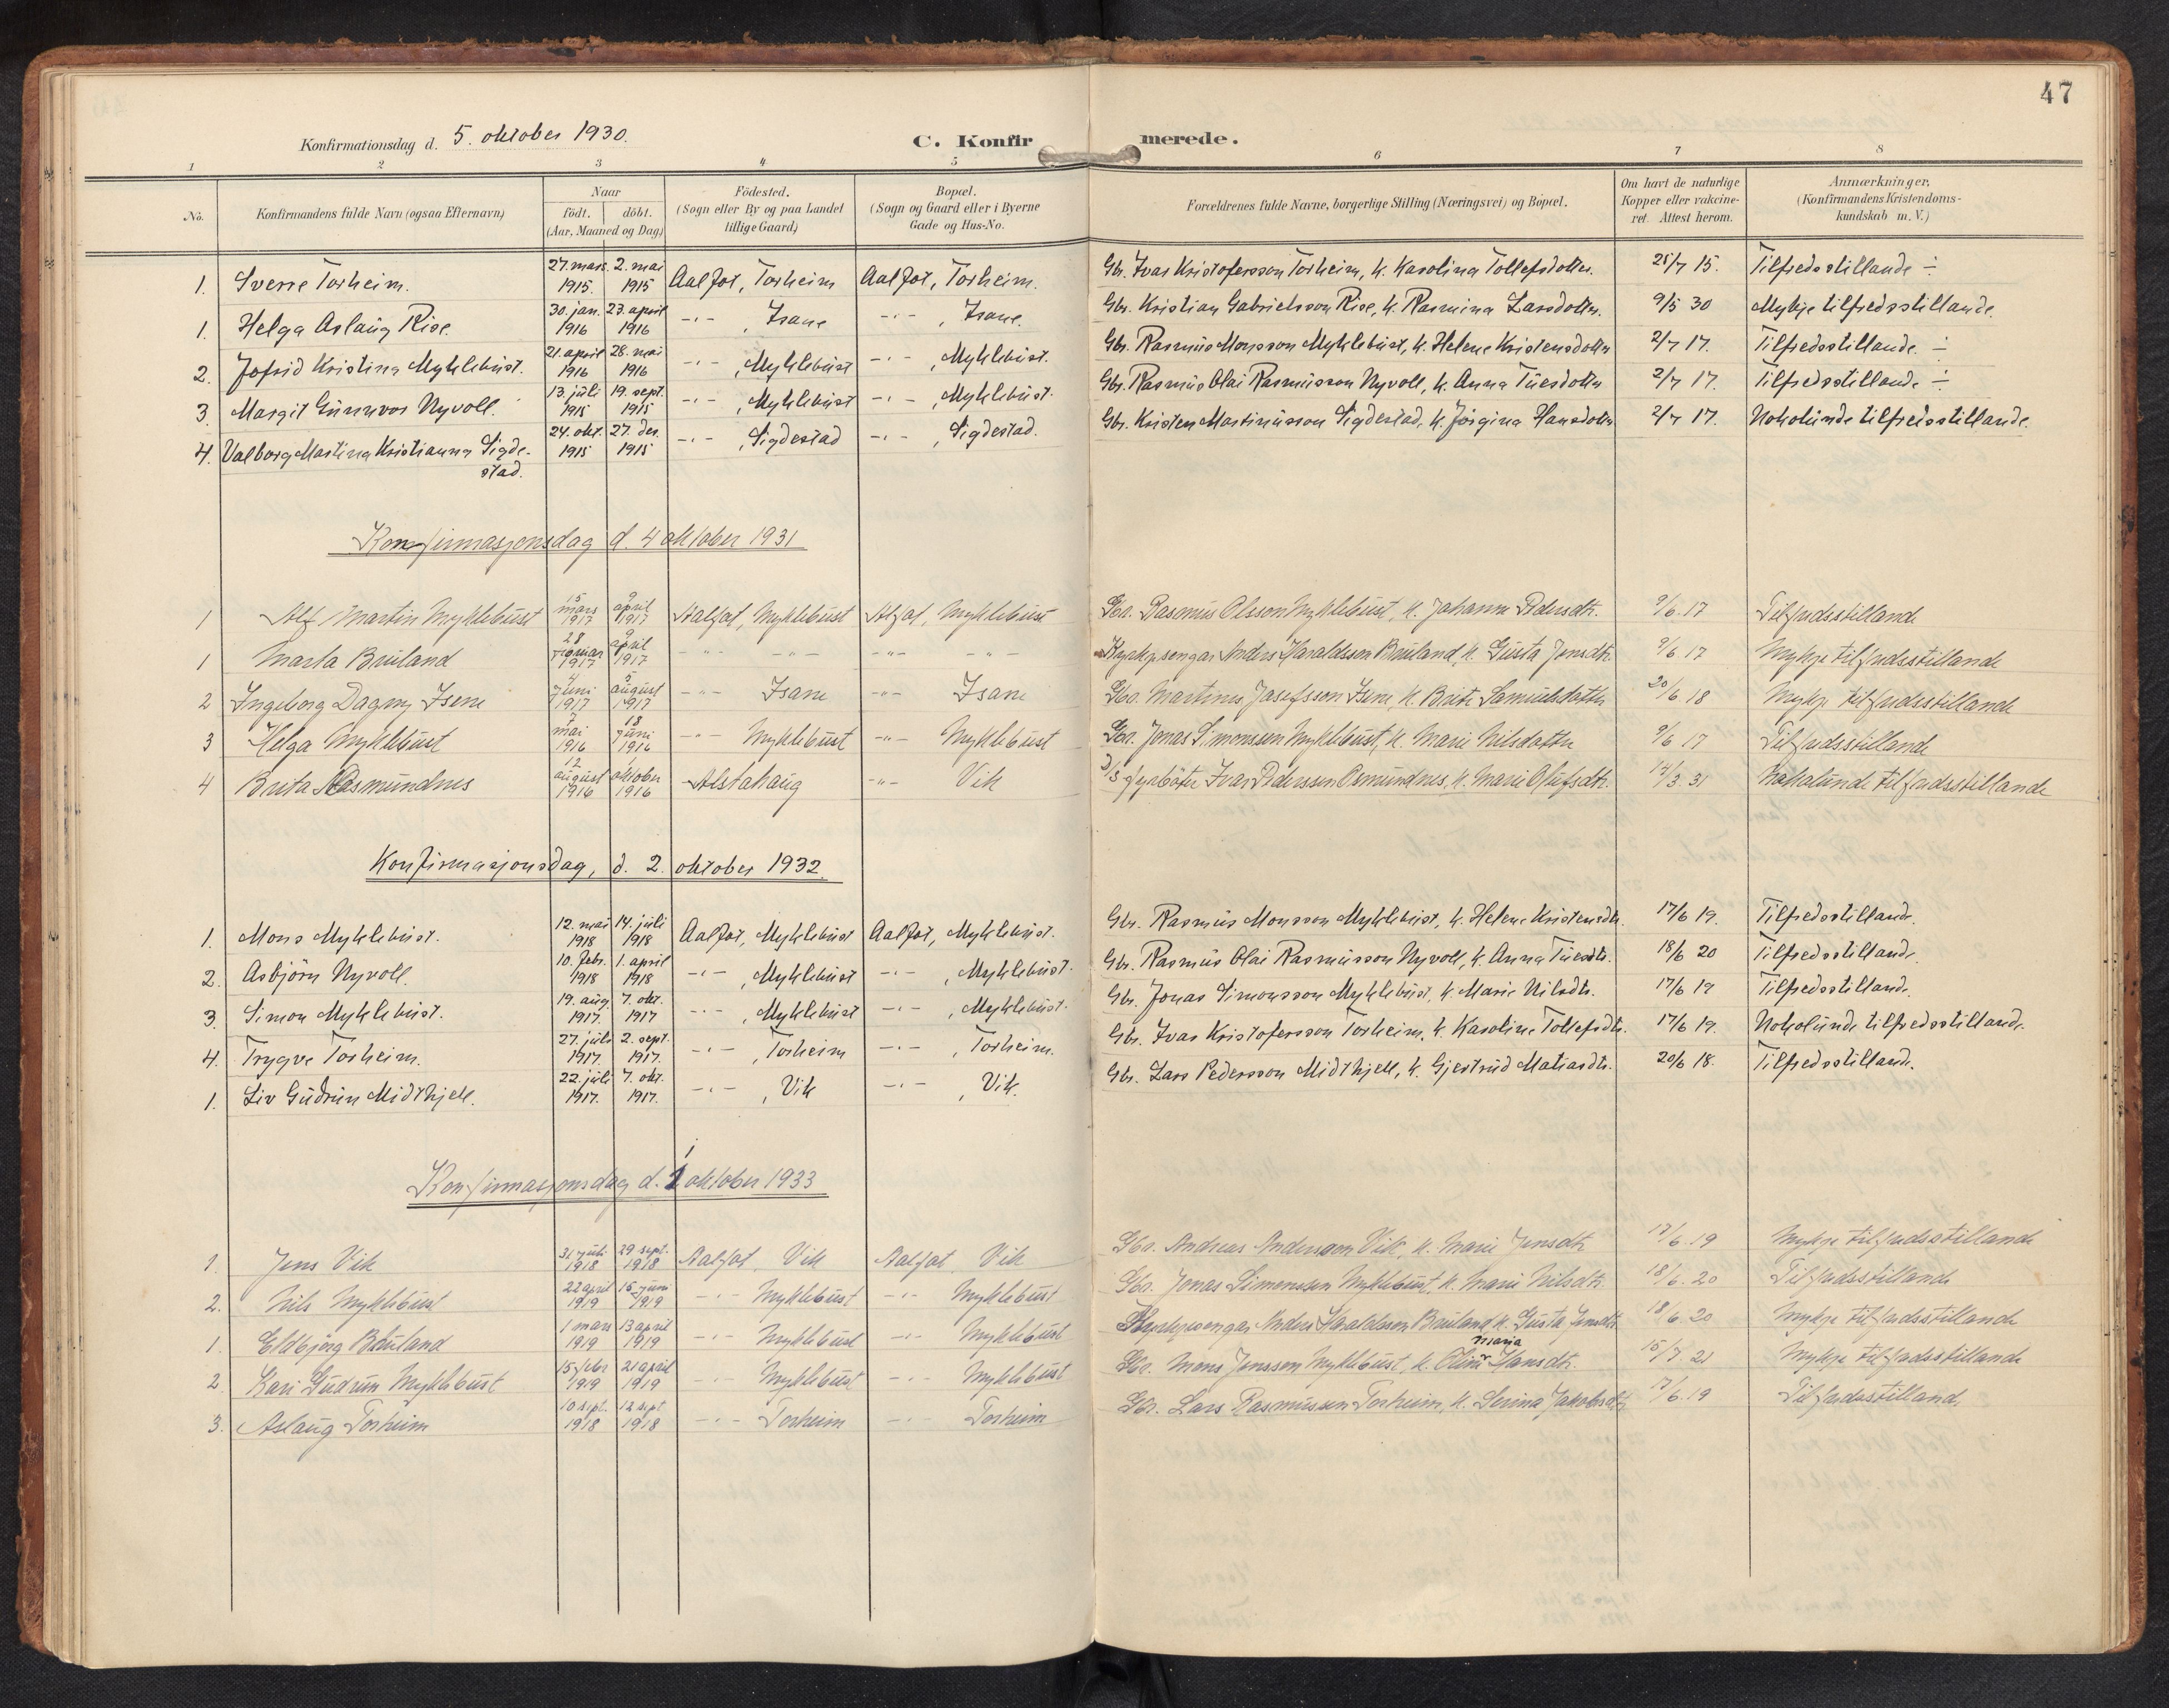 47
Konfirmationsdag d. 5. oktober 1930. C. Konfirmerede.
1 2 3 4 5 6 7 8
No. Konfirmandens fulde Navn (ogsaa Efternavn) Naar födt. döbt. (Aar, Maaned og Dag) Födested. (Sogn eller By og paa Landet tillige Gaard) Bopæl. (Sogn og Gaard eller i Byerne Gade og Hus-No. Forældrenes fulde Navne, borgerlige Stilling (Næringsvei) og Bopæl. Om havt de naturlige Kopper eller vakcineret. Attest herom. Anmærkninger. (Konfirmandens Kristendomskundskab m. V.)
1. Sverre Torheim. 27. mars 1915. 2. mai 1915 Aalfot, Torheim Aalfot, Torheim. Gbr. Ivar Kristofersson Torheim, k. Karolina Tollefsdotter. 25/7 15. Tilfredsstillande ÷
1. Helga Aslaug Rise. 30. jan. 1916 23. april 1916 -"- , Isane -"- , Isane. Gbr. Kristian Gabrielsson Rise, k. Rasmina Larsdotter. 9/5 30 Mykje tilfredsstillande.
2. Jofrid Kristina Myklebust. 21. april 1916 28. mai 1916 -"- , Myklebust -"- , Myklebust. Gbr. Rasmus Monsson Myklebust, k. Helene Kristensdotter 2/7 17. Tilfredsstillande ÷
3 Margit Gunnvor Nyvoll. 13. juli 1915 19. sept. 1915 -"- , Myklebust -"- , Myklebust. Gbr. Rasmus Olai Rasmusson Nyvoll, k. Anna Tuesdotter 2/7 17. Tilfredsstillande ÷
4. Valborg Martina Kristianna Sigdestad. 24. okt. 1915 27. des. 1915 -"- , Sigdestad -"- , Sigdestad. Gbr. Kristen Martinusson Sigdestad, k. Jørgina Hansdotter 2/7 17. Nokolunde tilfredsstillande.
Konfirmasjonsdag d. 4 oktober 1931
1 Alf Martin Myklebust 15 mars 1917 9 april 1917 Aalfot, Myklebust Alfot, Myklebust Gbr. Rasmus Olsson Myklebust, k. Johanna Pedersdtr. 9/6.17 Tilfredsstilland
1 Marta Bruland 28 februar 1917 9 april 1917 -"- -"- -"- -"- Kyrkjesongar Anders Haraldsson Bruland, k. Gusta Jensdtr. 9/6 17 Mykje tilfredsstillande
2 Ingeborg Dagny Isene 4 juni 1917 5 august 1917 -"- Isane -"- Isane Gbr. Martinus Josefsson Isene, k. Brite Samuelsdotter 20/6 18 Mykje tilfredsstillande
3 Helga Myklebust 7 mai 1916 18 juni 1916 -"- Myklebust -"- Myklebust Gbr. Jonas Simonssen Myklebust, k. Marie Nilsdotter 9/6 17 Tilfredsstilland
4 Brita Aasmundnes 12 august 1916 1 oktober 1916 Alstahaug -"- Vik Ivar Pederssen Osmundnes, k. Marie Olufsdtr. 14/3.31 Nokolunde tilfredsstillande
Konfirmasjonsdag, d. 2. oktober 1932.
1. Mons Myklebust. 12. mai 1918 14. juli 1918 Aalfot, Myklebust Aalfot, Myklebust. Gbr. Rasmus Monsson Myklebust, k. Helene Kristensdtr. 17/6 19. Tilfredsstilland.
2. Asbjörn Nyvoll. 10. febr. 1918 1. april 1918 -"- , Myklebust -"- , Myklebust. Gbr. Rasmus Olai Rasmusson Nyvoll, k. Anna Tuesdtr. 18/6 20 Tilfredsstilland.
3. Simon Myklebust. 19. aug. 1917. 7. okt. 1917 -"- , Myklebust -"- , Myklebust. Gbr. Jonas Simonsson Myklebust, k. Marie Nilsdtr. 17/6 19 Tilfredsstilland.
4. Trygve Torheim. 27. juli 1917. 2. sept. 1917. -"- , Torheim -"- , Torheim. Gbr. Ivar Kristofersson Torheim, k. Karoline Tollefsdtr. 17/6 19. Nokolunde tilfredsstilland.
1. Liv Gudrun Midthjell. 22. juli 1917. 7. okt. 1917. -"- , Vik -"- , Vik. Gbr. Lars Pedersson Midthjell, k. Gjertrud Matiasdtr. 20/6 18. Tilfredsstilland.
Konfirmasjonsdag d. 1 oktober 1933
1. Jens Vik 31 juli 1918 29 sept. 1918 Aalfot, Vik Aalfot Vik Gbr. Andreas Andersson Vik, k. Marie Jensdtr. 17/6.19 Mykje tilfredsstillande
2. Nils Myklebust 22 april 1919 15 juni 1919 -"- Myklebust -"- Myklebust Gbr. Jonas Simonssen Myklebust, k. Marie Nilsdtr. 18/6.20 Tilfredsstilland
1. Eldbjørg Bruland 1 mars 1919 13 april 1919 -"- Myklebust -"- Myklebust Kyrkjesongar Anders Haraldsson Bruland, k. Gusta Jensdtr 18/6.20 Mykje tilfredsstillande
2. Kari Gudrun Myklebust 15 febr 1919 21 april 1919 -"- Myklebust -"- Myklebust Gbr. Mons Jonssen Myklebust, k. Oline Maria Hansdtr. 15/7.21 Mykje tilfredsstillande
3. Aslaug Torheim 10 sept. 1918 12 sept 1918 -"- Torheim -"- Torheim Gbr. Lars Rasmussen Torheim, k. Serina Jakobsdtr 17/6.19 Tilfredsstilland.